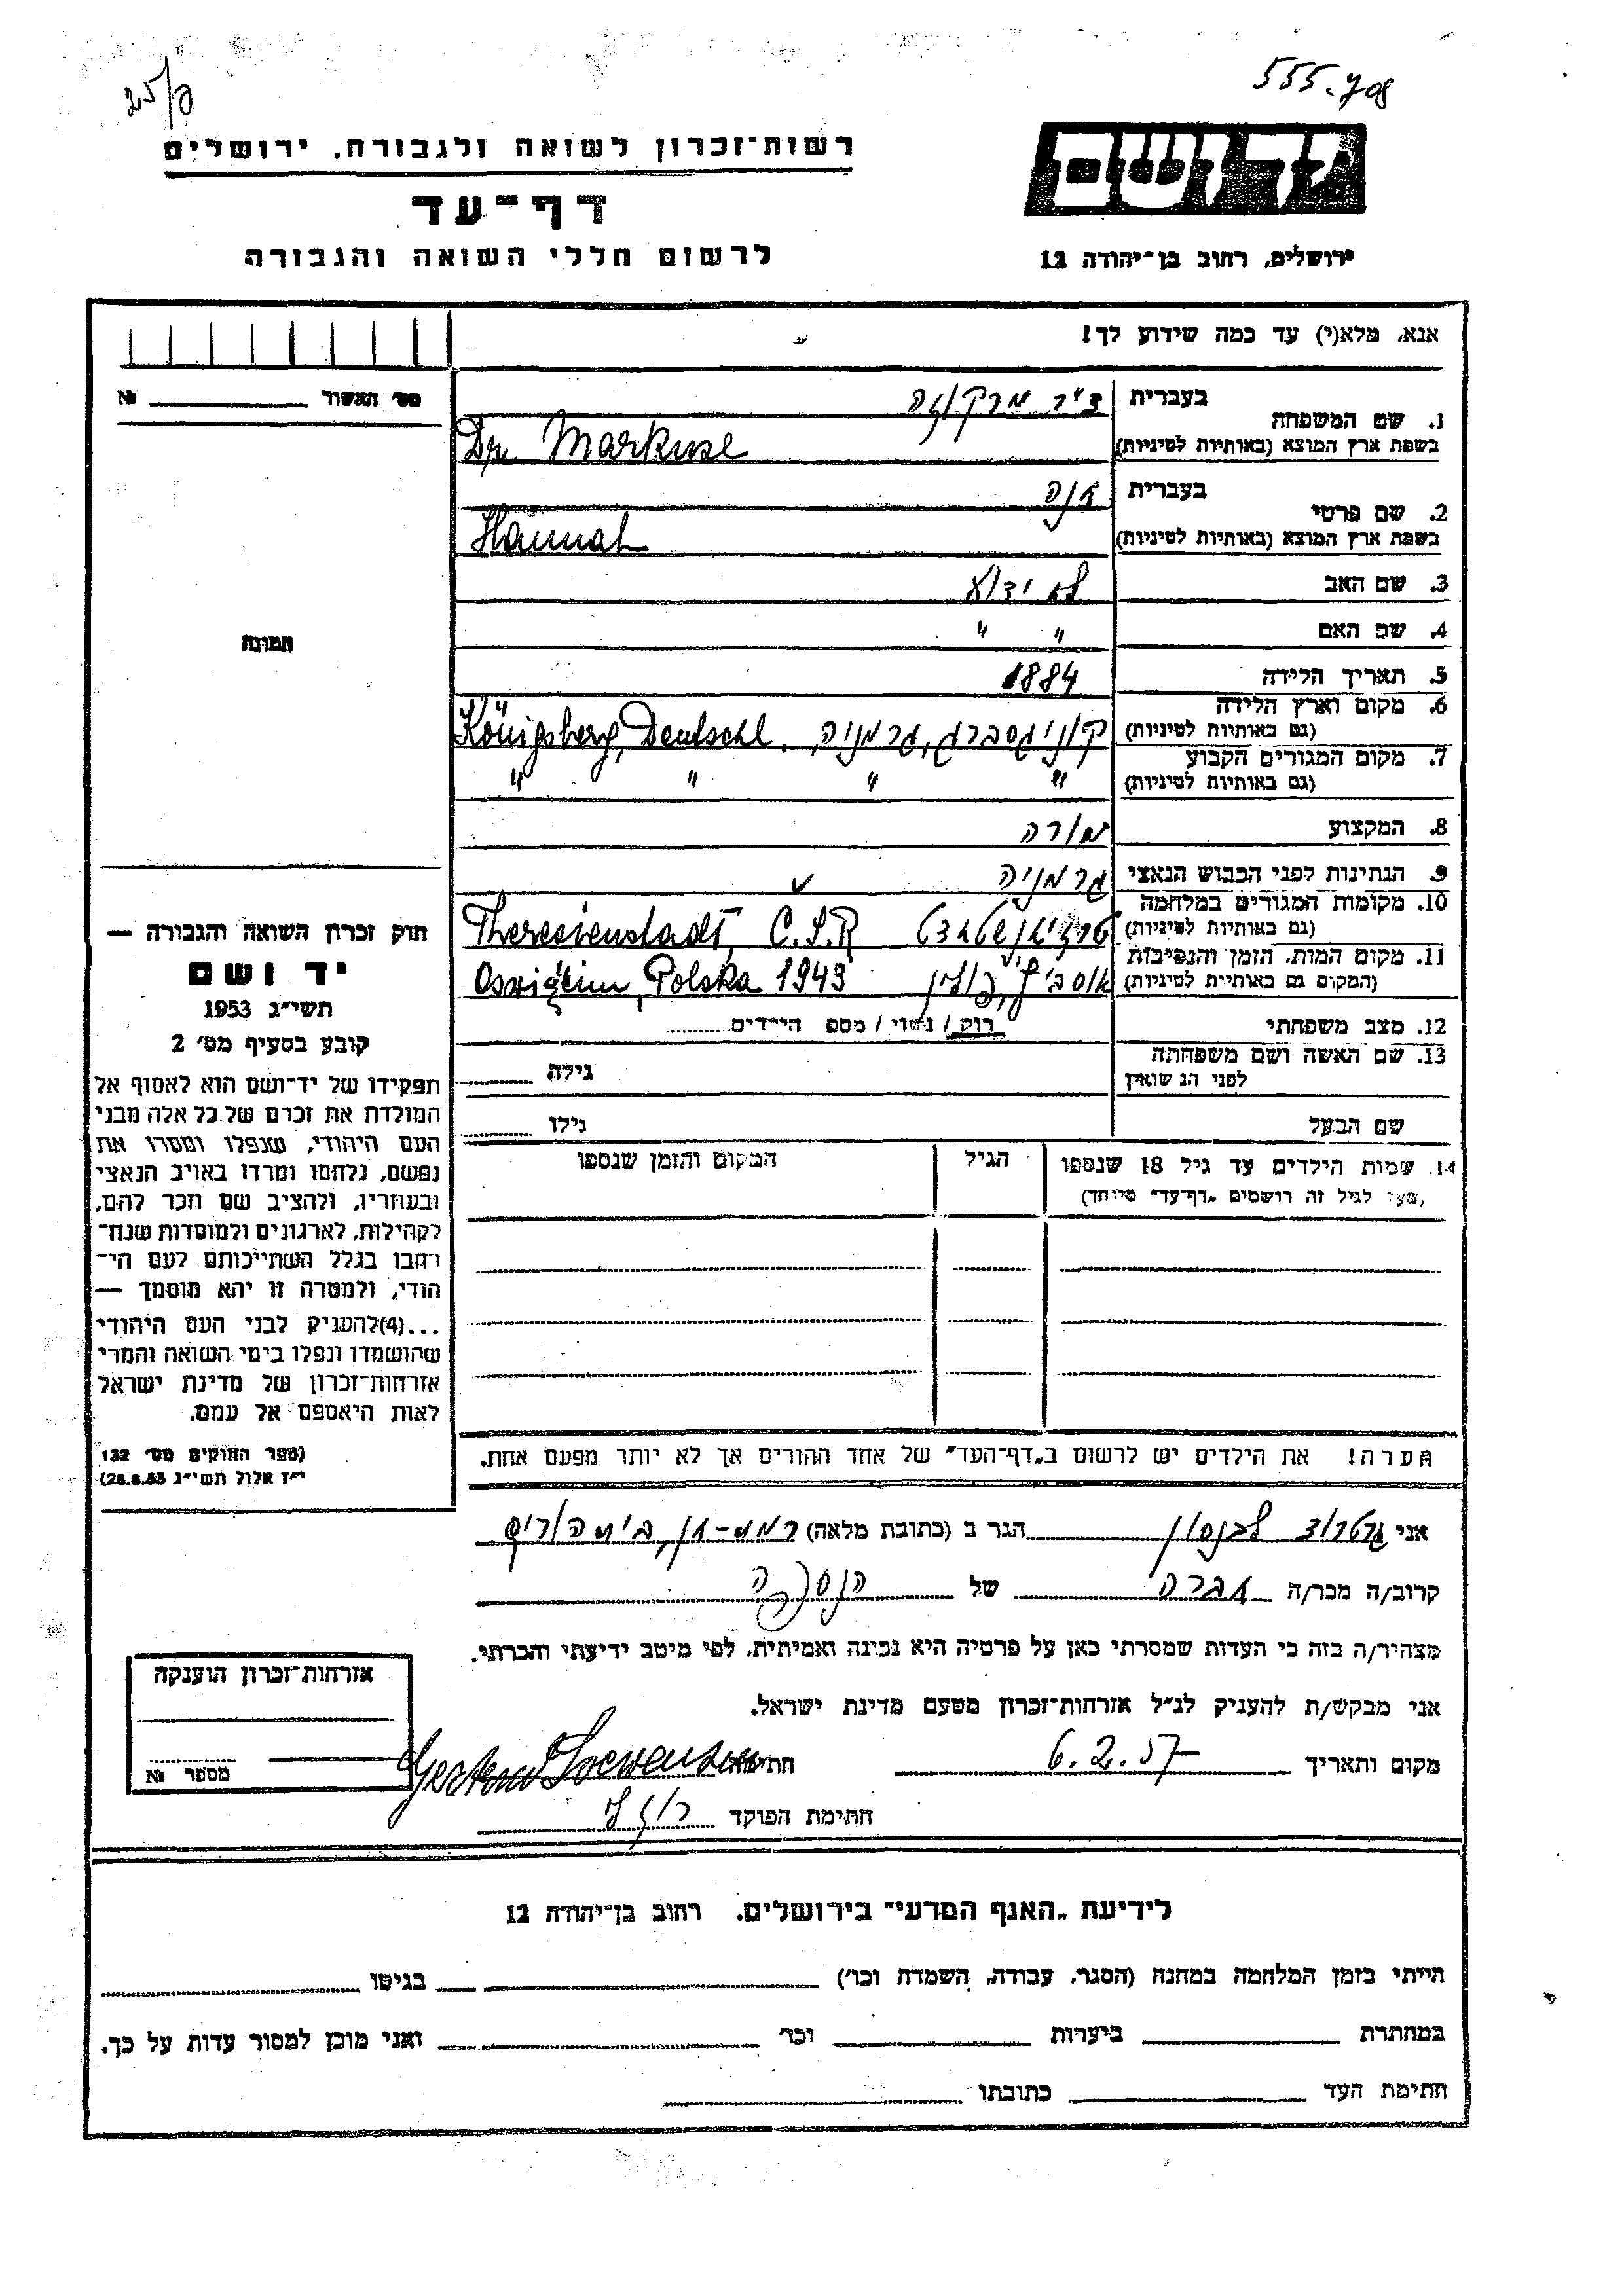 25/פ
555.708
רשות־זכרון לשואה ולגבורה, ירושלים
דף־עד
לרשום חללי השואה והגבורה
יד ושם
ירושלים, רחוב בן־יהודה 12
אנא, מלא(י) עד כמה שידוע לך!
מס׳ האשור № 
1. שם המשפחה בעברית ד״ר מרקוזה
בשפת ארץ המוצא (באותיות לטיניות) Dr. Markuse
2. שם פרטי בעברית חנה
בשפת ארץ המוצא (באותיות לטיניות) Hannah
3. שם האב לא ידוע
4. שם האם " "
5. תאריך הלידה 1884
6. מקום וארץ הלידה (גם באותיות לטיניות) קוניגסברג, גרמניה, Königsberg, Deutschl.
7. מקום המגורים הקבוע (גם באותיות לטיניות) " " " "
8. המקצוע מורה
9. הנתינות לפני הכבוש הנאצי גרמניה
10. מקומות המגורים במלחמה (גם באותיות לטיניות) טרזיאנשטדט Theresienstadt, C.S.R
11. מקום המות, הזמן והנסיבות (המקום גם באותיות לטיניות) אוסביץ, פולין Oswięcim, Polska 1943
12. מצב משפחתי רוק / נשוי / מספ הילדים
13. שם האשה ושם משפחתה לפני הנשואין גילה
שם הבעל גילו
14. שמות הילדים עד גיל 18 שנספו הגיל המקום והזמן שנספו
(מעל לגיל זה רושמים „דף־עד״ מיוחד)
הערה! את הילדים יש לרשום ב„דף־העד״ של אחד ההורים אך לא יותר מפעם אחת.
תמונה
חוק זכרון השואה והגבורה —
יד ושם
תשי״ג 1953
קובע בסעיף מס׳ 2
תפקידו של יד־ושם הוא לאסוף אל
המולדת את זכרם של כל אלה מבני
העם היהודי, שנפלו ומסרו את
נפשם, נלחמו ומרדו באויב הנאצי
ובעוזריו, ולהציב שם וזכר להם,
לקהילות, לארגונים ולמוסדות שנח־
רבו בגלל השתייכותם לעם הי־
הודי, ולמטרה זו יהא מוסמך —
...(4) להעניק לבני העם היהודי
שהושמדו ונפלו בימי השואה והמרי
אזרחות־זכרון של מדינת ישראל
לאות היאספם אל עמם.
(ספר החוקים מס׳ 132
י״ז אלול תשי״ג 28.8.53)
אני גרטרוד לבנסון הגר ב (כתובת מלאה) רמת-גן, בית הורים
קרוב/ה מכר/ה חברה של הנספה
מצהיר/ה בזה כי העדות שמסרתי כאן על פרטיה היא נכונה ואמיתית, לפי מיטב ידיעתי והכרתי.
אני מבקש/ת להעניק לנ״ל אזרחות־זכרון מטעם מדינת ישראל.
מקום ותאריך 6.2.57 חתימה Gertrud Loewenson
חתימת הפוקד
אזרחות־זכרון הוענקה
מספר №
לידיעת „האגף המדעי״ בירושלים, רחוב בן־יהודה 12
הייתי בזמן המלחמה במחנה (הסגר, עבודה, השמדה וכו׳) בגיטו
במחתרת ביערות וכו׳ ואני מוכן למסור עדות על כך.
חתימת העד כתובתו